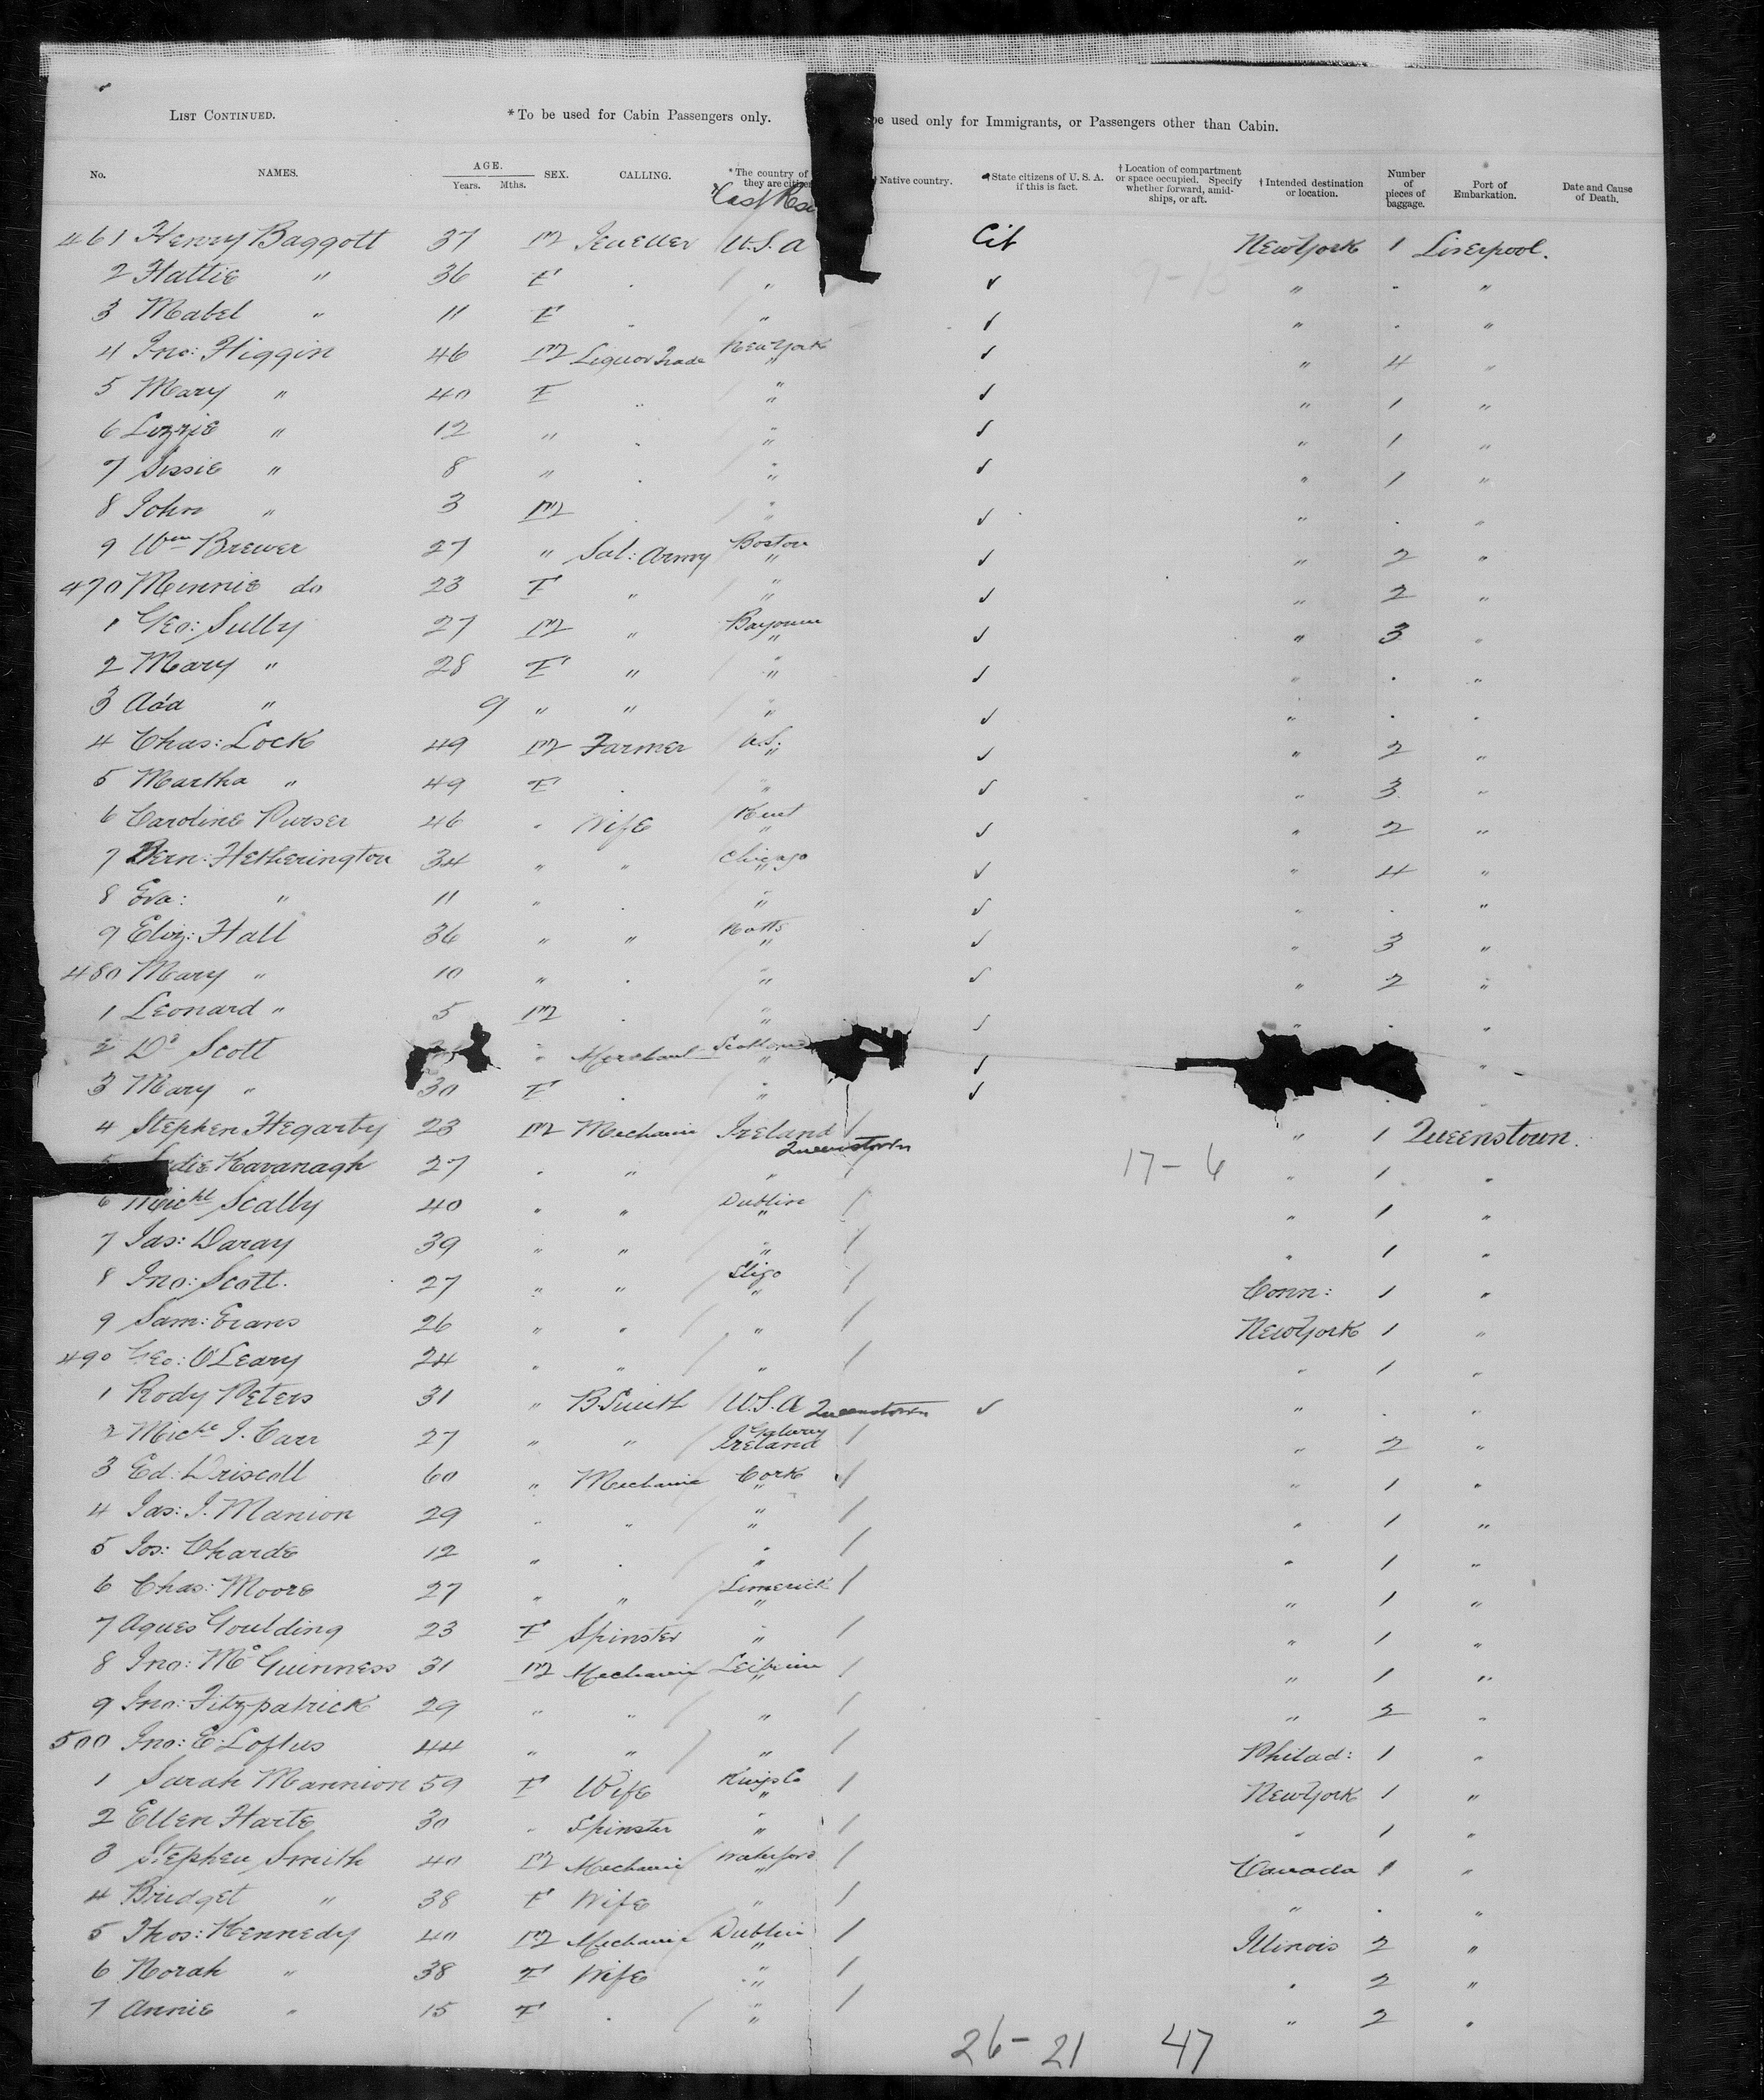 LIST CONTINUED. *To be used for Cabin Passengers only. be used only for Immigrants, or Passengers other than Cabin.
No. NAMES. AGE. Years. Mths. SEX. CALLING. *The country of they are citizen † Native country. State citizens of U. S. A. if this is fact. † Location of compartment or space occupied. Specify whether forward, amidships, or aft. † Intended destination or location. Number of pieces of baggage. Port of Embarkation. Date and Cause of Death.
Last Res
461 Henry Baggott 37 M Jeweller U.S.A Cit New York 1 Liverpool.
2 Hattie " 36 F . " ✓ " . "
3 Mabel " 11 F . " ✓ " . "
4 Jno: Higgin 46 M Liquor Trade New York " ✓ " 4 "
5 Mary " 40 F . " ✓ " 1 "
6 Lizzie " 12 " . " ✓ " 1 "
7 Sissie " 8 " . " ✓ " 1 "
8 John " 3 M . " ✓ " . "
9 Wm Brewer 27 " Sal: Army Boston " ✓ " 2 "
470 Minnie do 23 F " " ✓ " 2 "
1 Geo: Sully 27 M " " ✓ " 3 "
2 Mary " 28 F " " ✓ " . "
3 Ada " 9 " " " ✓ " . "
4 Chas: Lock 49 M Farmer U.S. " ✓ " 2 "
5 Martha " 49 F . " ✓ " 3 "
6 Caroline Purser 46 " Wife Kent " ✓ " 2 "
7 Bern: Hetherington 34 " " Chicago " ✓ " 4 "
8 Eva: " 11 " . " ✓ " . "
9 Eliz: Hall 36 " " Notts " ✓ " 3 "
480 Mary " 10 " . " ✓ " 2 "
1 Leonard " 5 M . " ✓ " . "
2 Dr Scott " Merchant Scotland " ✓ "
3 Mary " 30 F . " ✓ "
4 Stephen Hegarty 23 M Mechanic Ireland / " 1 Queenstown.
Queenstown
Kavanagh 27 " " " / 17-6 " 1 "
6 Michl Scally 40 " " Dublin " / " 1 "
7 Jas: Daray 39 " " " / " 1 "
8 Jno: Scott. 27 " " Sligo " / Conn: 1 "
9 Sam: Evans 26 " " " / New York 1 "
490 Geo: O'Leary 24 " " " / " 1 "
1 Rody Peters 31 " B.Smith U.S.A Queenstown ✓ " . "
2 Michl J. Carr 27 " " Galway Ireland / " 2 "
3 Ed: Driscoll 60 " Mechanic Cork " / " 1 "
4 Jas: J. Manion 29 " " " / " 1 "
5 Jos: Charde 12 " . " / " 1 "
6 Chas: Moore 27 " " Limerick " / " 1 "
7 Agnes Goulding 23 F Spinster " / " 1 "
8 Jno: McGuinness 31 M Mechanic Leitrim " / " 1 "
9 Jno: Fitzpatrick 29 " " " / " 2 "
500 Jno: E. Loftus 44 " " " / Philad: 1 "
1 Sarah Mannion 59 F Wife Kings Co " / New York 1 "
2 Ellen Harte 30 " Spinster " / " 1 "
3 Stephen Smith 40 M Mechanic Waterford " / Canada 1 "
4 Bridget " 38 F Wife " / " . "
5 Thos: Kennedy 40 M Mechanic Dublin " / Illinois 2 "
6 Norah " 38 F Wife " / " 2 "
7 Annie " 15 F . " / " 2 "
26-21 47